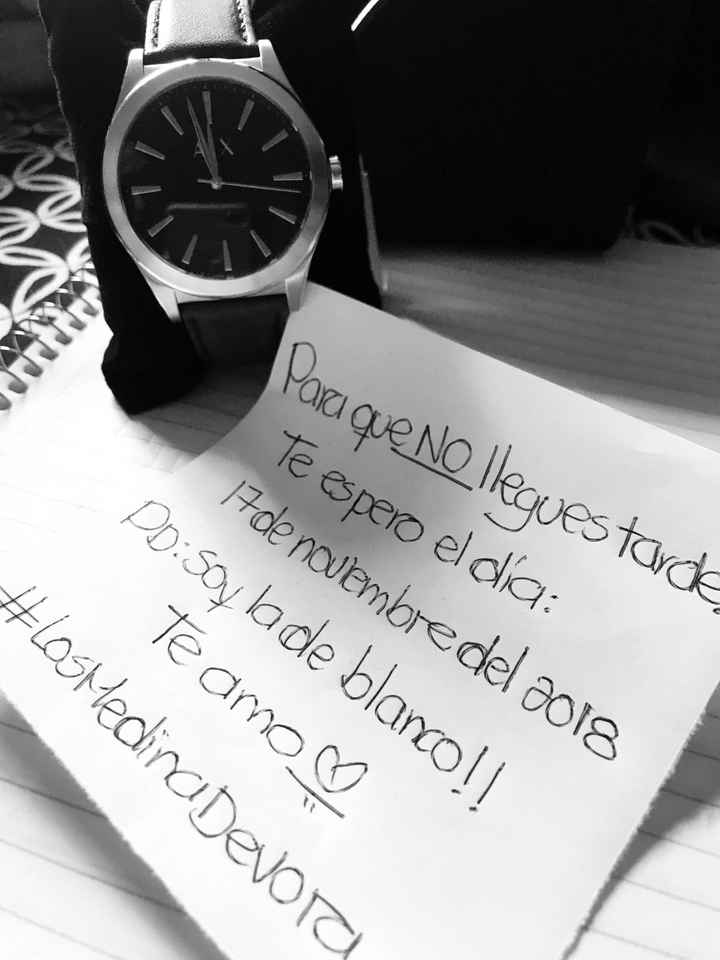 A|X
Para que NO llegues tarde.
Te espero el día:
17 de noviembre del 2018
PD: Soy la de blanco!!
Te amo ♡
#LosMedinaDevora